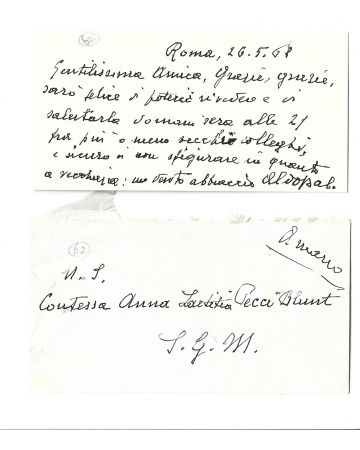 Roma, 26.5.68
Gentilissima Amica, Grazie, grazie,
sarò felice di potervi rivedere e
salutarla domani sera alle 21
fra più o meno vecchi colleghi,
e sicuro di non sfigurare in quanto
a vecchiaia: un abbraccio
62
A mano
N. S.
Contessa Anna Laetitia Pecci Blunt
S. G. M.